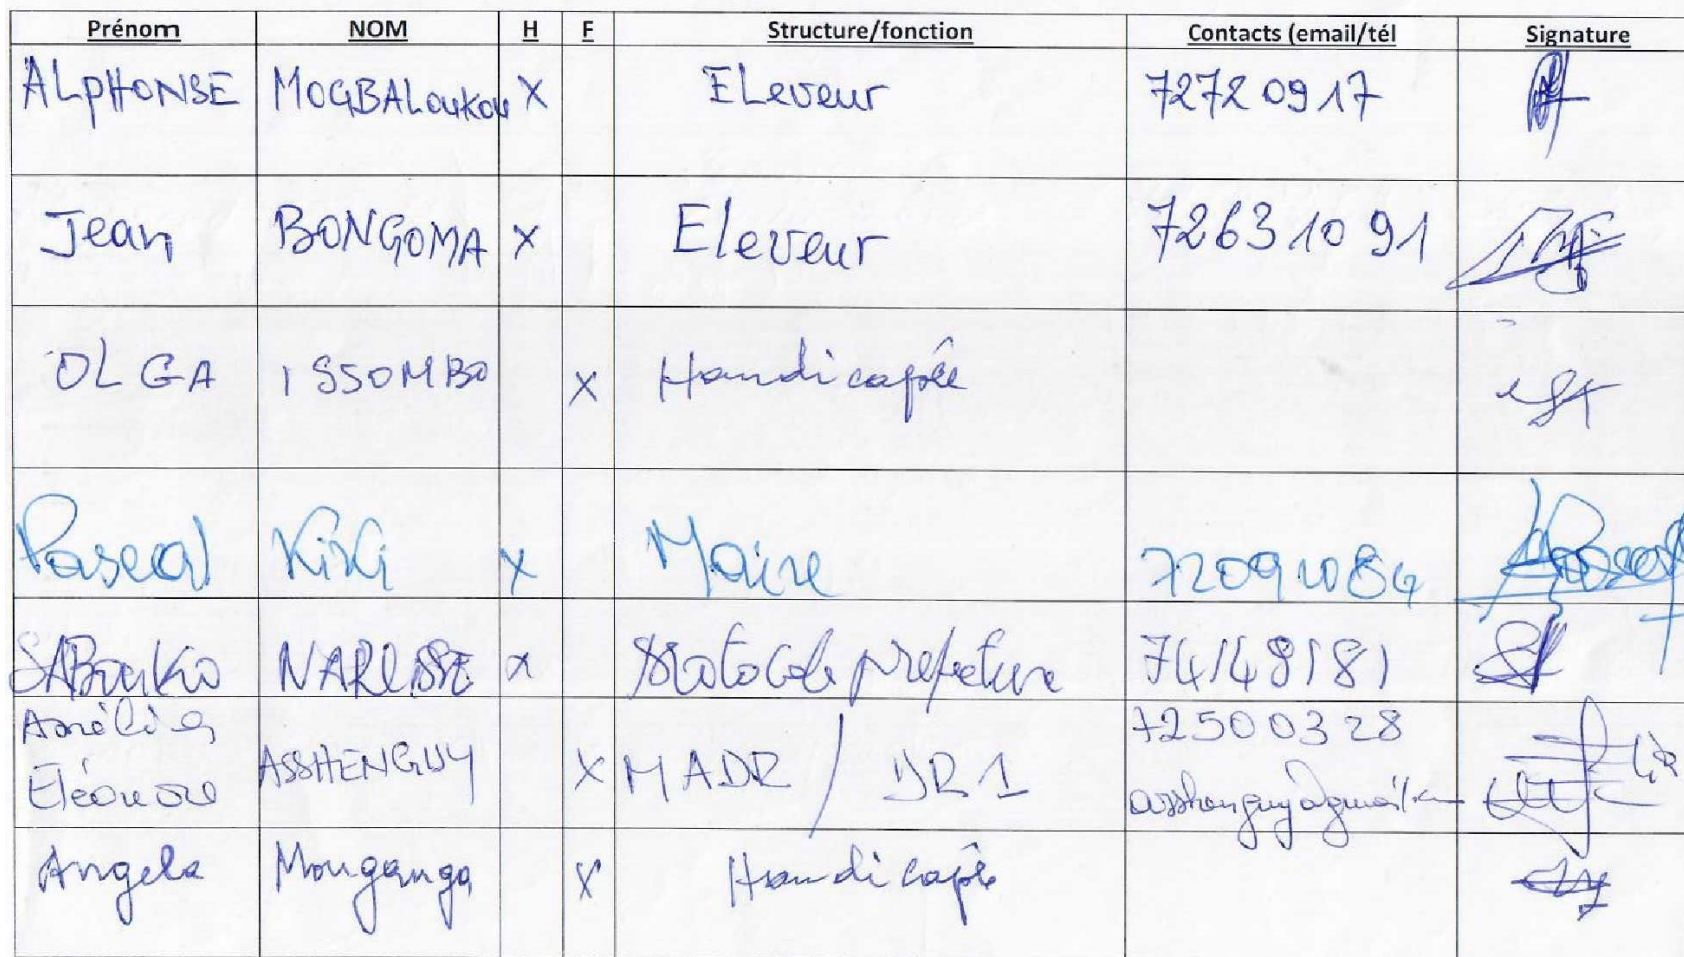 Prénom NOM H F Structure/fonction Contacts (email/tél Signature
ALPHONSE MOGBALoukou X ELeveur 7272 09 17
Jean BONGOMA X Eleveur 72631091
OLGA ISSOMBO X Handicapée
Pascal KiKi X Maire
SABouKo X Protocole préfecture 74148181
72500328
Eléonore ASSHENGUY X MADR / DR1
Angela Mouganga X Handicapée